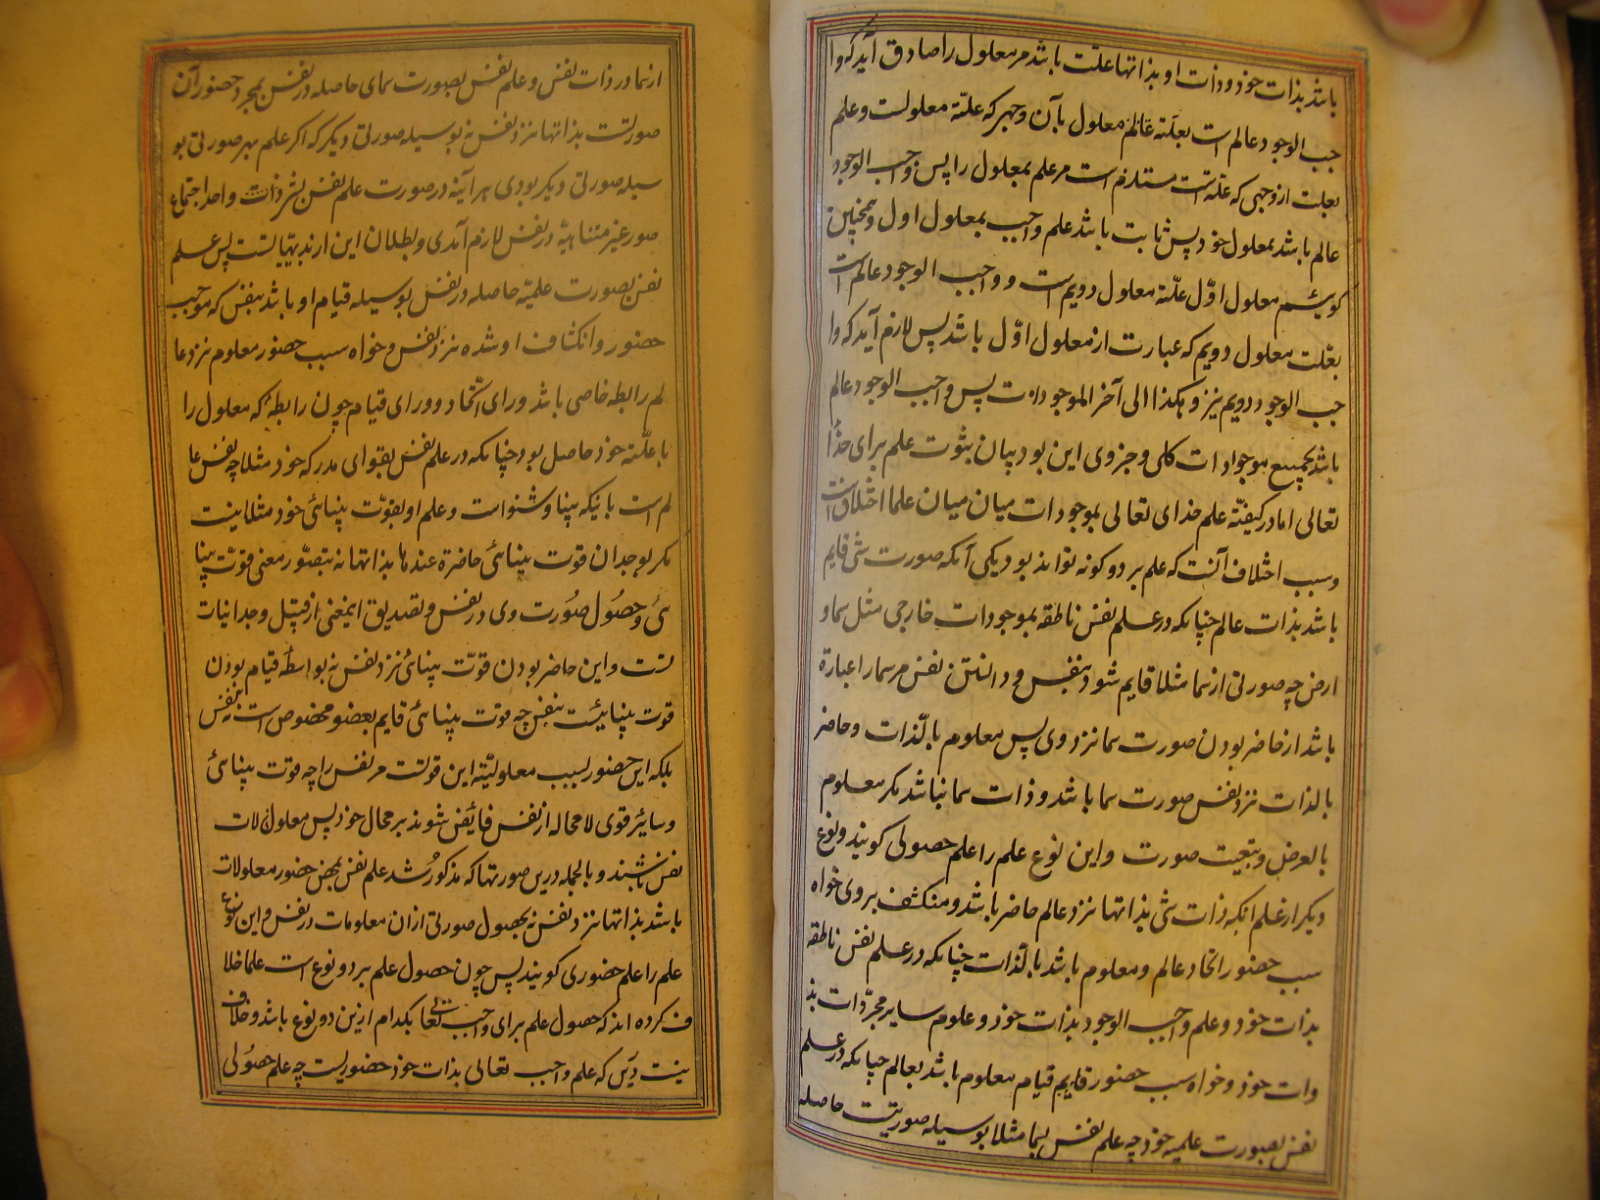 باشد بذات خود و ذات او بذاتها علت باشد مر معلول را صادق آید که وا
جب الوجود عالم است بعلته عالم معلول بآن وجهی که علته معلولست و علم
بعلت از وجهی که علته است مستلزم است مر علم بمعلول را پس واجب الوجود
عالم باشد بمعلول خود پس ثابت باشد علم واجب بمعلول اول و همچنین
کوئیم معلول اوّل علّته معلول دویم است و واجب الوجود عالم است
بعّلت معلول دویم که عبارت از معلول اوّل باشد پس لازم آید که وا
جب الوجود دویم نیز و هکذا الی آخر الموجودات پس واجب الوجود عالم
باشد بجمیع موجودات کلی و جزوی این بود بیان ثبوت علم برای خدا
تعالی اما در کیفیّه علم خدای تعالی بموجودات میان میان علما اختلافست
و سبب اختلاف آنست که علم بر دو کونه تواند بود یکی آنکه صورت شی قایم
باشد بذات عالم چنانکه در علم نفس ناطقه بموجودات خارجی مثل سما و
ارض چه صورتی از سما مثلا قایم شود بنفس و دانستن نفس مر سما را عبارة
باشد از حاضر بودن صورت سما نزد وی پس معلوم بالّذات و حاضر
بالذات نزد نفس صورت سما باشد و ذات سما نباشد مکر معلوم
بالعرض و بتبعیت صورت و این نوع علم را علم حصولی کویند و نوع
دیکر از علم انکه ذات شی بذاتها نزد عالم حاضر باشد و منکشف بر وی خواه
سبب حضور اتحاد عالم و معلوم باشد بالّذات چنانکه در علم نفس ناطقه
بذات خود و علم واجب الوجود بذات خود و علوم سایر مجرّدات بذ
وات خود و خواه سبب حضور قایم قیام معلوم باشد بعالم چنانکه در علم
نفس بصورت علمیه خود چه علم نفس بسما مثلا بوسیله صورتیست حاصله
از سما در ذات نفس و علم نفس بصورت سمای حاصله در نفس بمجرد حضور آن
صورتست بذاتها نزد نفس نه بوسیله صورتی دیکر که اکر علم بهر صورتی بو
سیله صورتی دیکر بودی هر آینه در صورت علم نفس بشی ذات واحد اجتماع
صور غیر متناهیة در نفس لازم آمدی و بطلان این از بدیهیاتست پس علم
نفس بصورت علمیّه حاصله در نفس بوسیله قیام او باشد بنفس که موجب
حضور و انکشاف او شده نزد نفس و خواه سبب حضور معلوم نزد عا
لم رابطه خاصی باشد ورای اتّحاد و ورای قیام چون رابطه که معلول را
با علّته خود حاصل بود چنانکه در علم نفس بقوای مدرکه خود مثلا چه نفس عا
لم است بانیکه بینا و شنواست و علم او بقوّت بینائی خود مثلا نیست
مکر بوجدان قوت بینائی حاضرة عندها بذاتها نه بتصّور معنی قوت بینا
ئی و حصُول صُورت وی در نفس و تصدیق اینمعنی از قبیل وجدانیات
ـست و این حاضر بودن قوّت بینائی نزد نفس نه بواسطه قیام بودن
قوت بینائیست بنفس چه قوت بینائی قایم بعضو مخصوص است نه بنفس
بلکه این حضور بسبب معلولیّته این قوتست مر نفس را چه قوت بینائی
و سایر قوی لا محاله از نفس فائض شوند بر محال خود پس معلولات
نفس باشند و بالجمله درین صورتها که مذکور شد علم نفس بمحض حضور معلولات
باشد بذاتها نزد نفس نه بحصول صورتی از ان معلومات در نفس و این نوع
علم را علم حضوری کویند پس چون حصول علم بر دو نوع است علما خلا
ف کرده اند که حصول علم برای واجب تعالی بکدام ازین دو نوع باشد و خلاف
نیست درین که علم واجب تعالی بذات خود حضوریست چه علم حصُولی